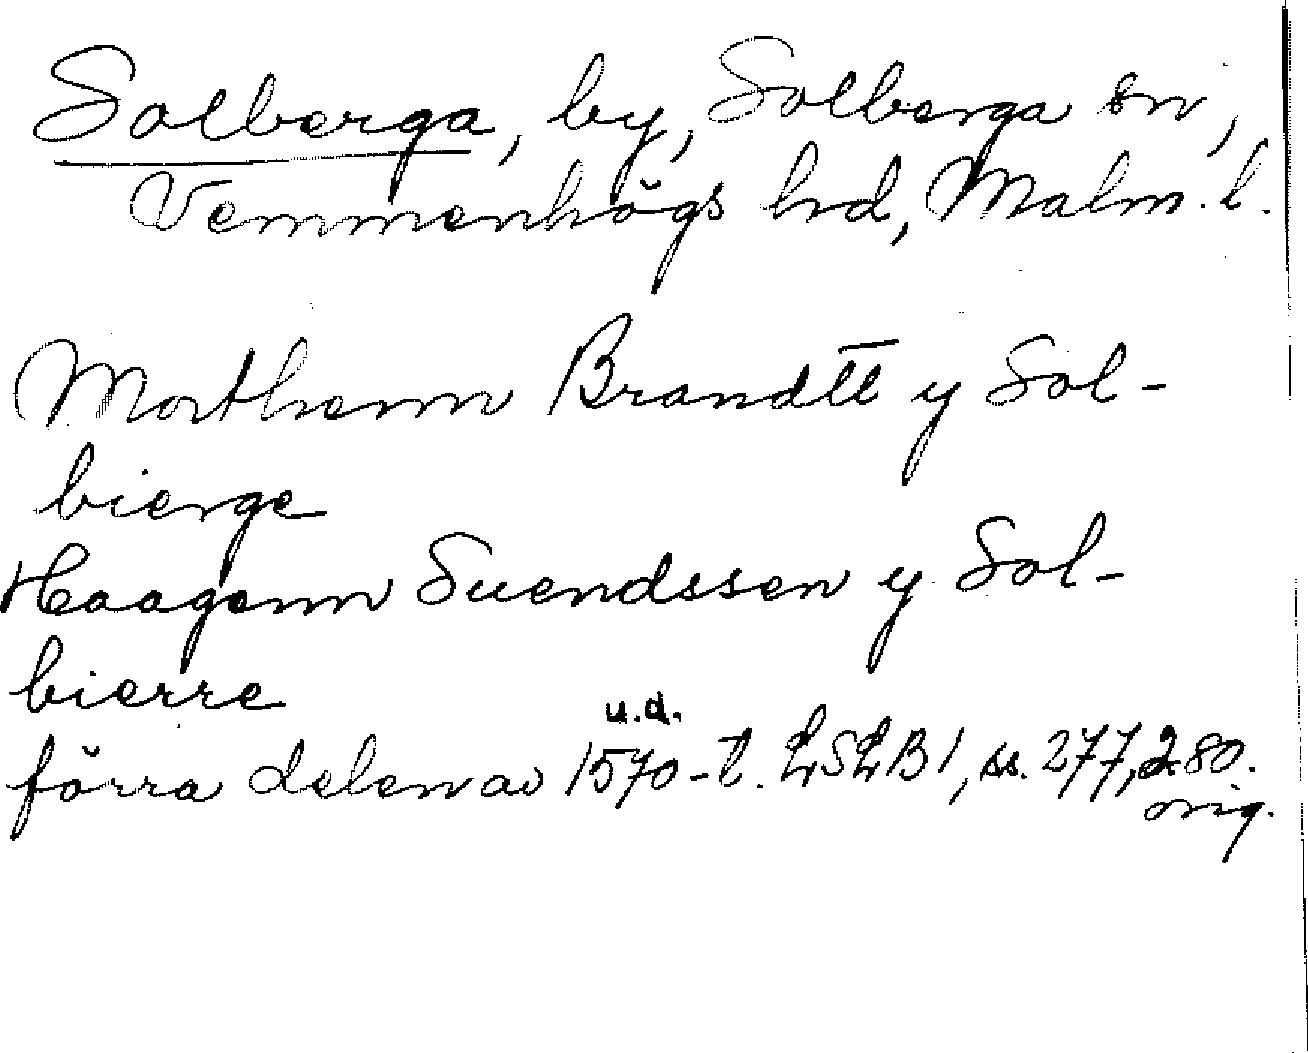 Solberga, by, Solberga sn,
Vemmenhögs hd, Malm. l.
Morthenn Brandtt y Sol-
bierge
Haagenn Suendssen y Sol-
bierre
u.d.
förra delen av 1570-t. LSLB1, ss. 277, 280.
orig.